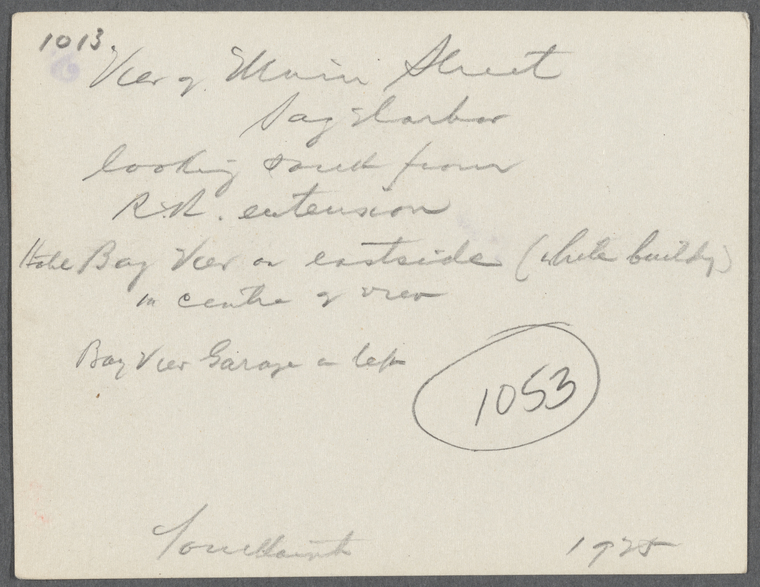 1013.
View of Main Street
Sag Harbor
looking south from
R.R. extension
Hotel Bay View on eastside (white building)
in centre of view
Bay View Garage on left
1053
Toussaint 1925